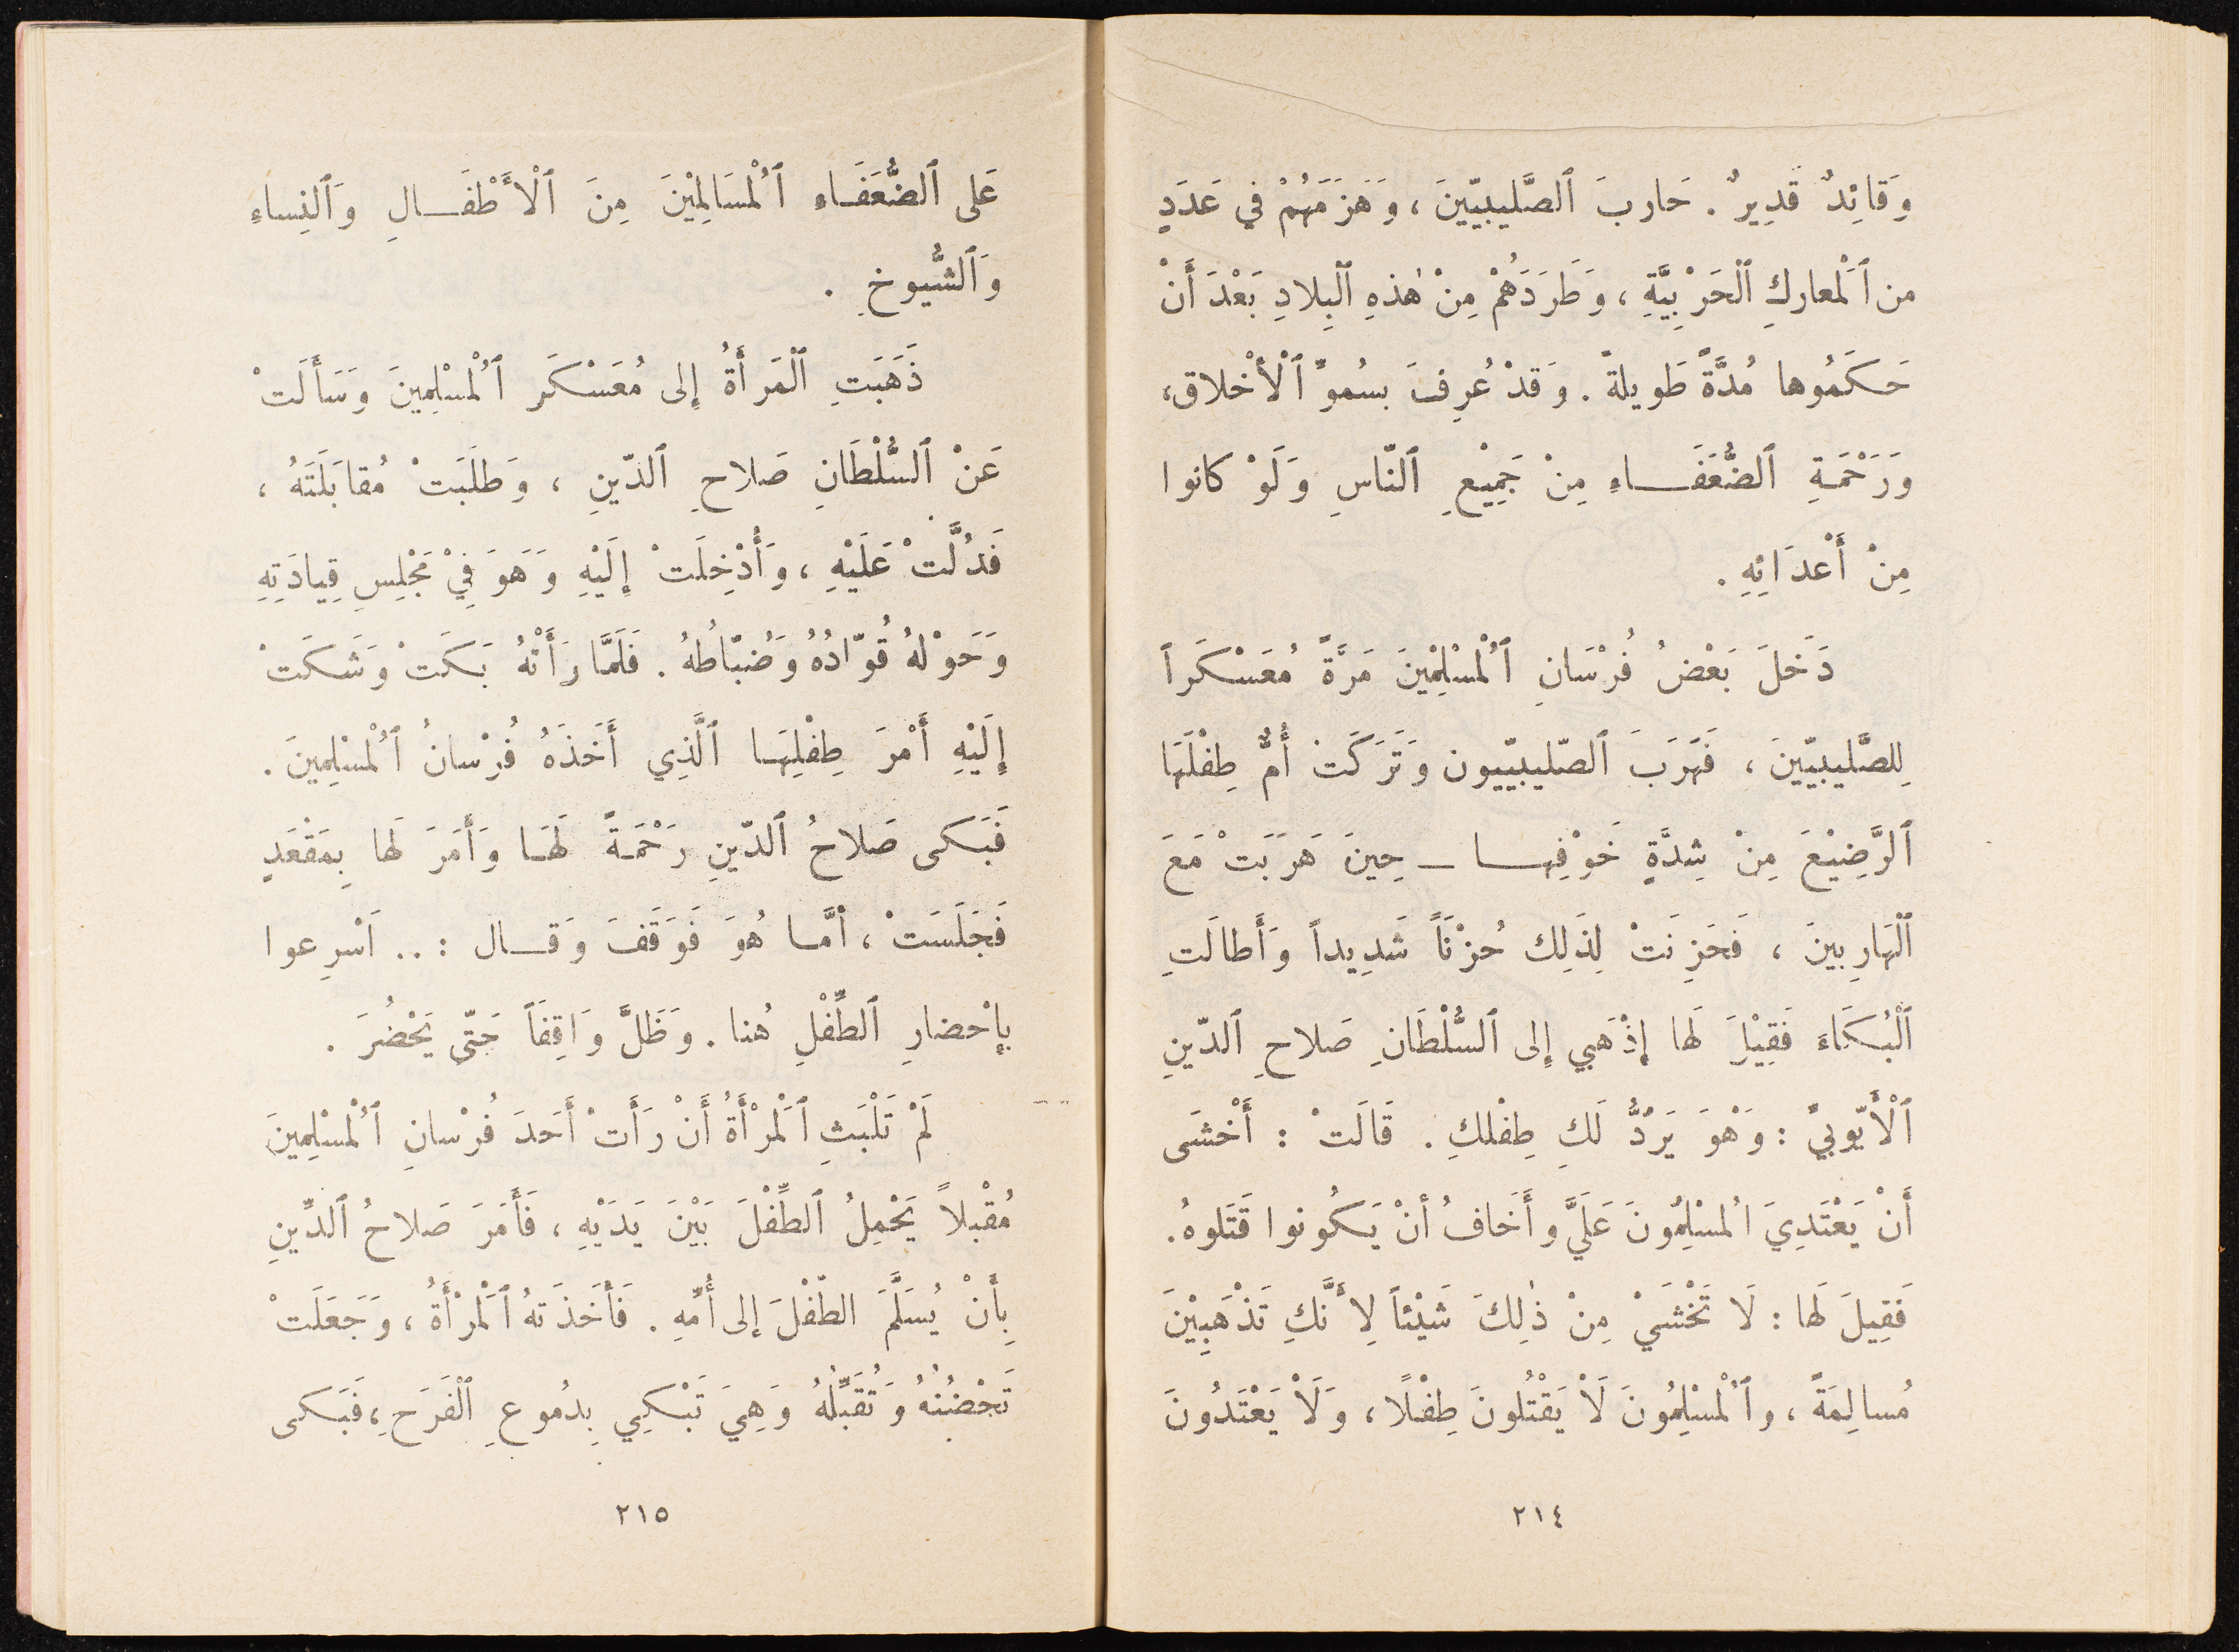 وَقائِدٌ قَدِيرٌ . حَاربَ ٱلصَّليبيّينَ ، وَهَزَمَهُمْ في عَدَدٍ
من ٱلْمَعاركِ ٱلْحَرْبِيَّةِ ، وَطَرَدَهُمْ مِنْ هٰذهِ ٱلْبِلادِ بَعْدَ أَنْ
حَكَمُوها مُدَّةً طَويلةً . وَقدْ عُرِفَ بسُموِّ ٱلْأخْلاق،
وَرَحْمَةِ ٱلضُّعَفَــاءِ مِنْ جَمِيْعِ ٱلنّاسِ وَلَوْ كانوا
مِنْ أَعْدَائِهِ .
دَخلَ بَعْضُ فُرْسَانِ ٱلْمُسْلِمْينَ مَرَّةً مُعَسْكَراً
لِلصَّليبيّينَ ، فَهَرَبَ ٱلصّليبيّيون وَتَرَكَتْ أُمٌّ طِفْلَهَا
ٱلرَّضِيْعَ مِنْ شِدَّةٍ خَوْفِهــا ــ حِينَ هَرَبَتْ مَعَ
ٱلْهَارِبينَ ، فَحَزِنَتْ لِذَلِك حُزْنَاً شَدِيداً وَأَطالَتِ
ٱلْبُكَاءَ فَقِيْلَ لَها إِذْهَبي إِلى ٱلسُّلْطَانِ صَلاحِ ٱلدّينِ
ٱلْأَيّوبيِّ : وَهْوَ يَرُدُّ لَكِ طِفْلكِ . قَالَتْ : أَخْشَى
أَنْ يَعْتَدِيَ اُلمسْلِمُونَ عَلَيَّ وأَخَافُ أنْ يَكُونوا قَتَلوهُ.
فَقِيلَ لَها : لَا تَخْشَيْ مِنْ ذٰلِكَ شَيْئاً لِأَنَّكِ تَذْهَبِيْنَ
مُسالِمَةً ، وٱلْمُسْلِمُونَ لَاْ يَقْتُلونَ طِفْلًا ، وَلَاْ يَعْتَدُونَ
٢١٤
عَلى ٱلضُّعَفَــاءِ ٱلْمُسَالِمْيْنَ مِنَ ٱلْأَطْفَــالِ وَٱلنِساءِ
وَٱلشُّيوخِ .
ذَهَبَتِ ٱلْمَرأَةُ إِلى مُعَسْكَر ٱلْمُسْلِمينَ وَسَأَلَتْ
عَنْ ٱلسُّلْطَانِ صَلاحِ ٱلدّينِ ، وَطلَبَتْ مُقابَلَتَهُ ،
فَدُلَّتْ عَلَيْهِ ، وَأُدْخِلَتْ إِلَيْهِ وَهَوَ فِيْ مَجْلِسِ قِيادَتِهِ
وَحَوْلهُ قُوّادُهُ وَضُبّاطُهُ . فَلَمَّا رَأَتْهُ بَكَتْ وَشَكَتْ
إِلَيْهِ أَمْرَ طِفْلِهَـا ٱلَّذِي أَخَذَهُ فُرْسانُ ٱلْمُسْلِمينَ .
فَبَكى صَلاحُ ٱلدّينِ رَحْمَةً لَهَـا وَأَمَرَ لَها بِمَقْعَدٍ
فَجَلَسَتْ ، أمَّـا هُوَ فَوَقَفَ وَقــال : .. اَسْرِعوا
بإحْضارِ ٱلطِّفْلِ هُنا . وَظَلَّ وَاقِفَاً حَتّى يَحْضُرَ .
لَمْ تَلْبَثِ ٱلْمَرْأَةُ أَنْ رَأَتْ أَحَدَ فُرْسانِ ٱلْمُسْلِمينَ
مُقْبلاً يَحْمِلُ ٱلطِّفْلَ بَيْنَ يَدَيْهِ ، فَأَمَرَ صَلاحُ ٱلدِّينِ
بِأَنْ يُسَلَّمَ الطّفْلَ إلى أُمّهِ . فَأَخَذَتهُ ٱلْمَرْأَةُ ، وَجَعَلَتْ
تَحْضُنُهُ وَتُقَبِّلُهُ وَهِيَ تَبْكِي بِدُموعِ ٱلْفَرَحِ ، فَبَكى
٢١٥